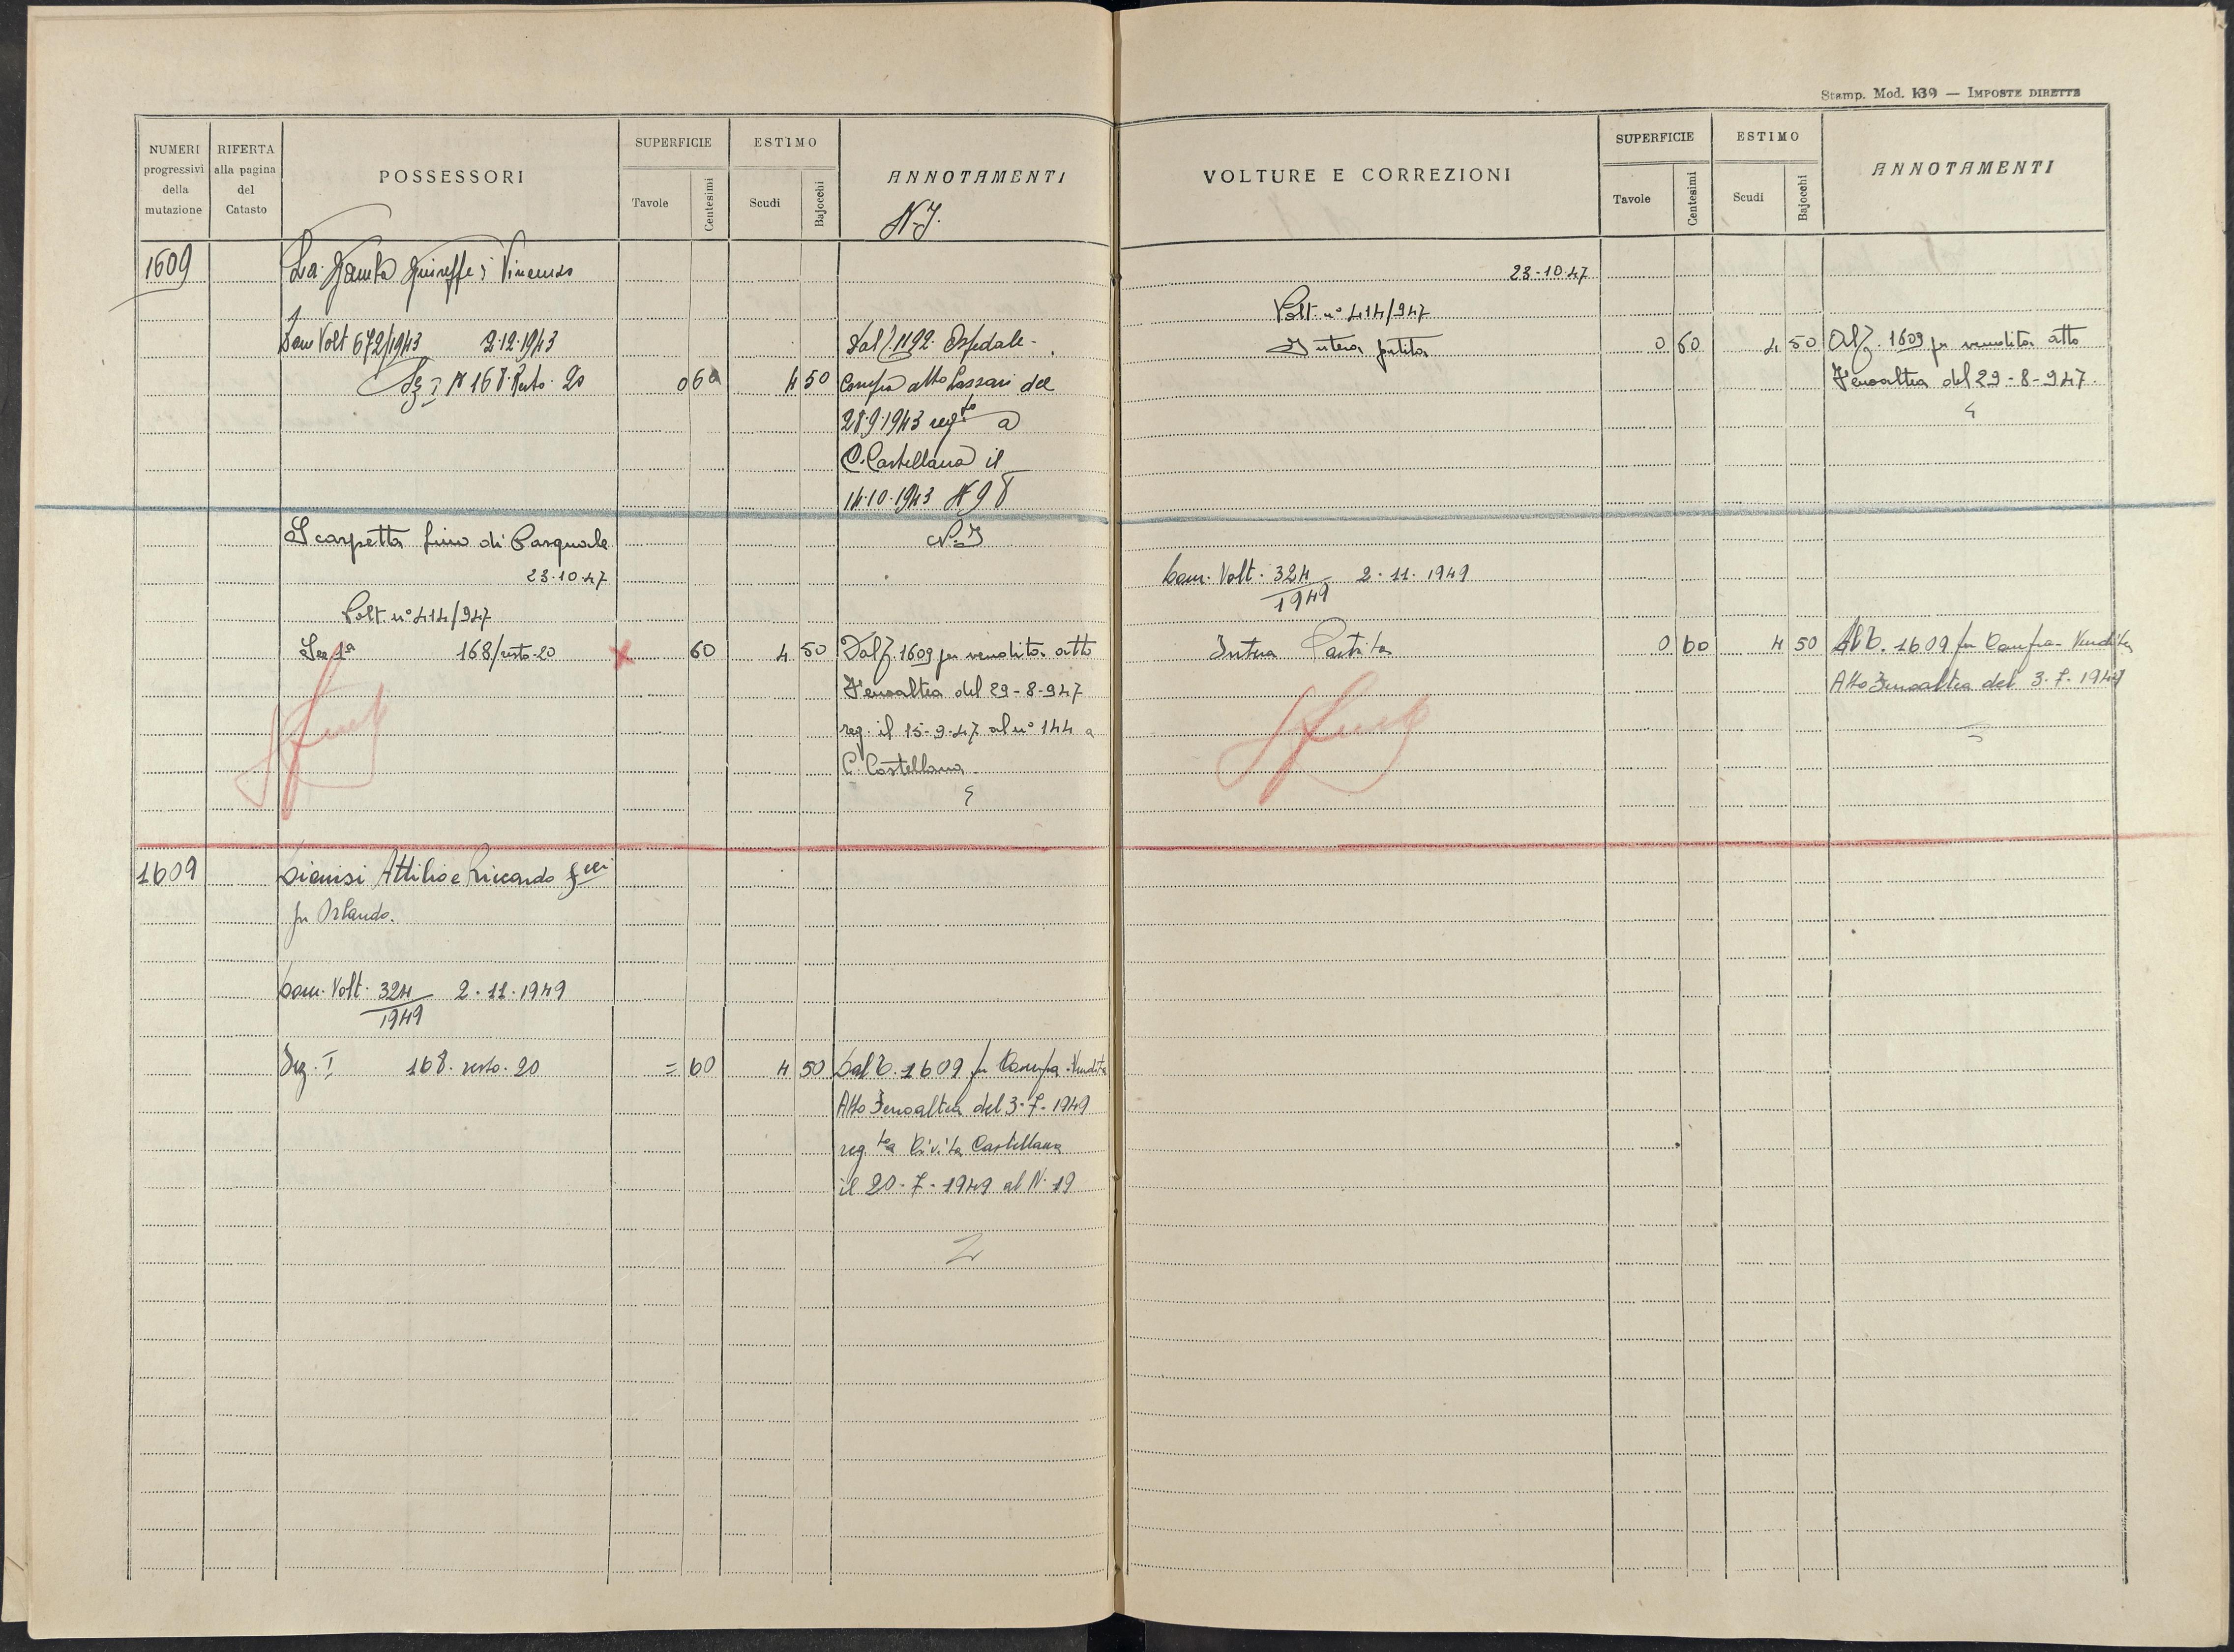 Stamp. Mod. 139 — IMPOSTE DIRETTE
NUMERI progressivi della mutazione
RIFERTA alla pagina del Catasto
POSSESSORI
SUPERFICIE
Tavole
Centesimi
ESTIMO
Scudi
Bajocchi
ANNOTAMENTI
N.I.
VOLTURE E CORREZIONI
SUPERFICIE
Tavole
Centesimi
ESTIMO
Scudi
Bajocchi
ANNOTAMENTI
1609
Vincenzo
Volt 672/1943 2.12.1943
N 168 Resto 20
0 60 4 50
Dal 1192 Ospedale
Compra atto Lazzari del
28.9.1943 reg.to a
C. Castellana il
14.10.1943 N 98
23-10-47
Volt. n° 414/947
Intera partita
0 60 4 50
Al 1609 per vendita atto
Fenoaltea del 29-8-947.
Scarpetta Lino di Pasquale
N. I
23.10.47
Volt. n° 414/947
Sez 1ª 168/resto 20
60 4 50
Dal 1609 per vendita atto
Fenoaltea del 29-8-947
reg. il 15-9-47 al n° 144 a
C. Castellana.
Dom. Volt. 324/1949 2.11.1949
Intera Partita
0 60 4 50
Al 1609 per Compra-Vendita
Atto Fenoaltea del 3.7.1949
1609
Dionisi Attilio e Riccardo f.lli
fu Orlando.
Dom. Volt. 324/1949 2.11.1949
Sez. I 168. resto. 20
= 60 4 50
Dal 1609 per Compra-Vendita
Atto Fenoaltea del 3.7.1949
reg.to a Civita Castellana
il 20.7.1949 al N. 19